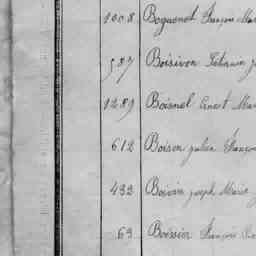 1008 Boguenet François Mar
587 Boisivon
1289 Boisnel Ernest Mar
612 Boison Julien François
433 Boivin Joseph Marie
69 Boissier François